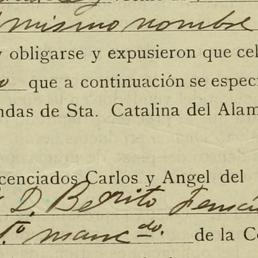 mismo nombre
y obligarse y expusieron que cel
que a continuación se especi
ndas de Sta. Catalina del Alam
icenciados Carlos y Angel del
D. Benito
1º manc do. de la Co